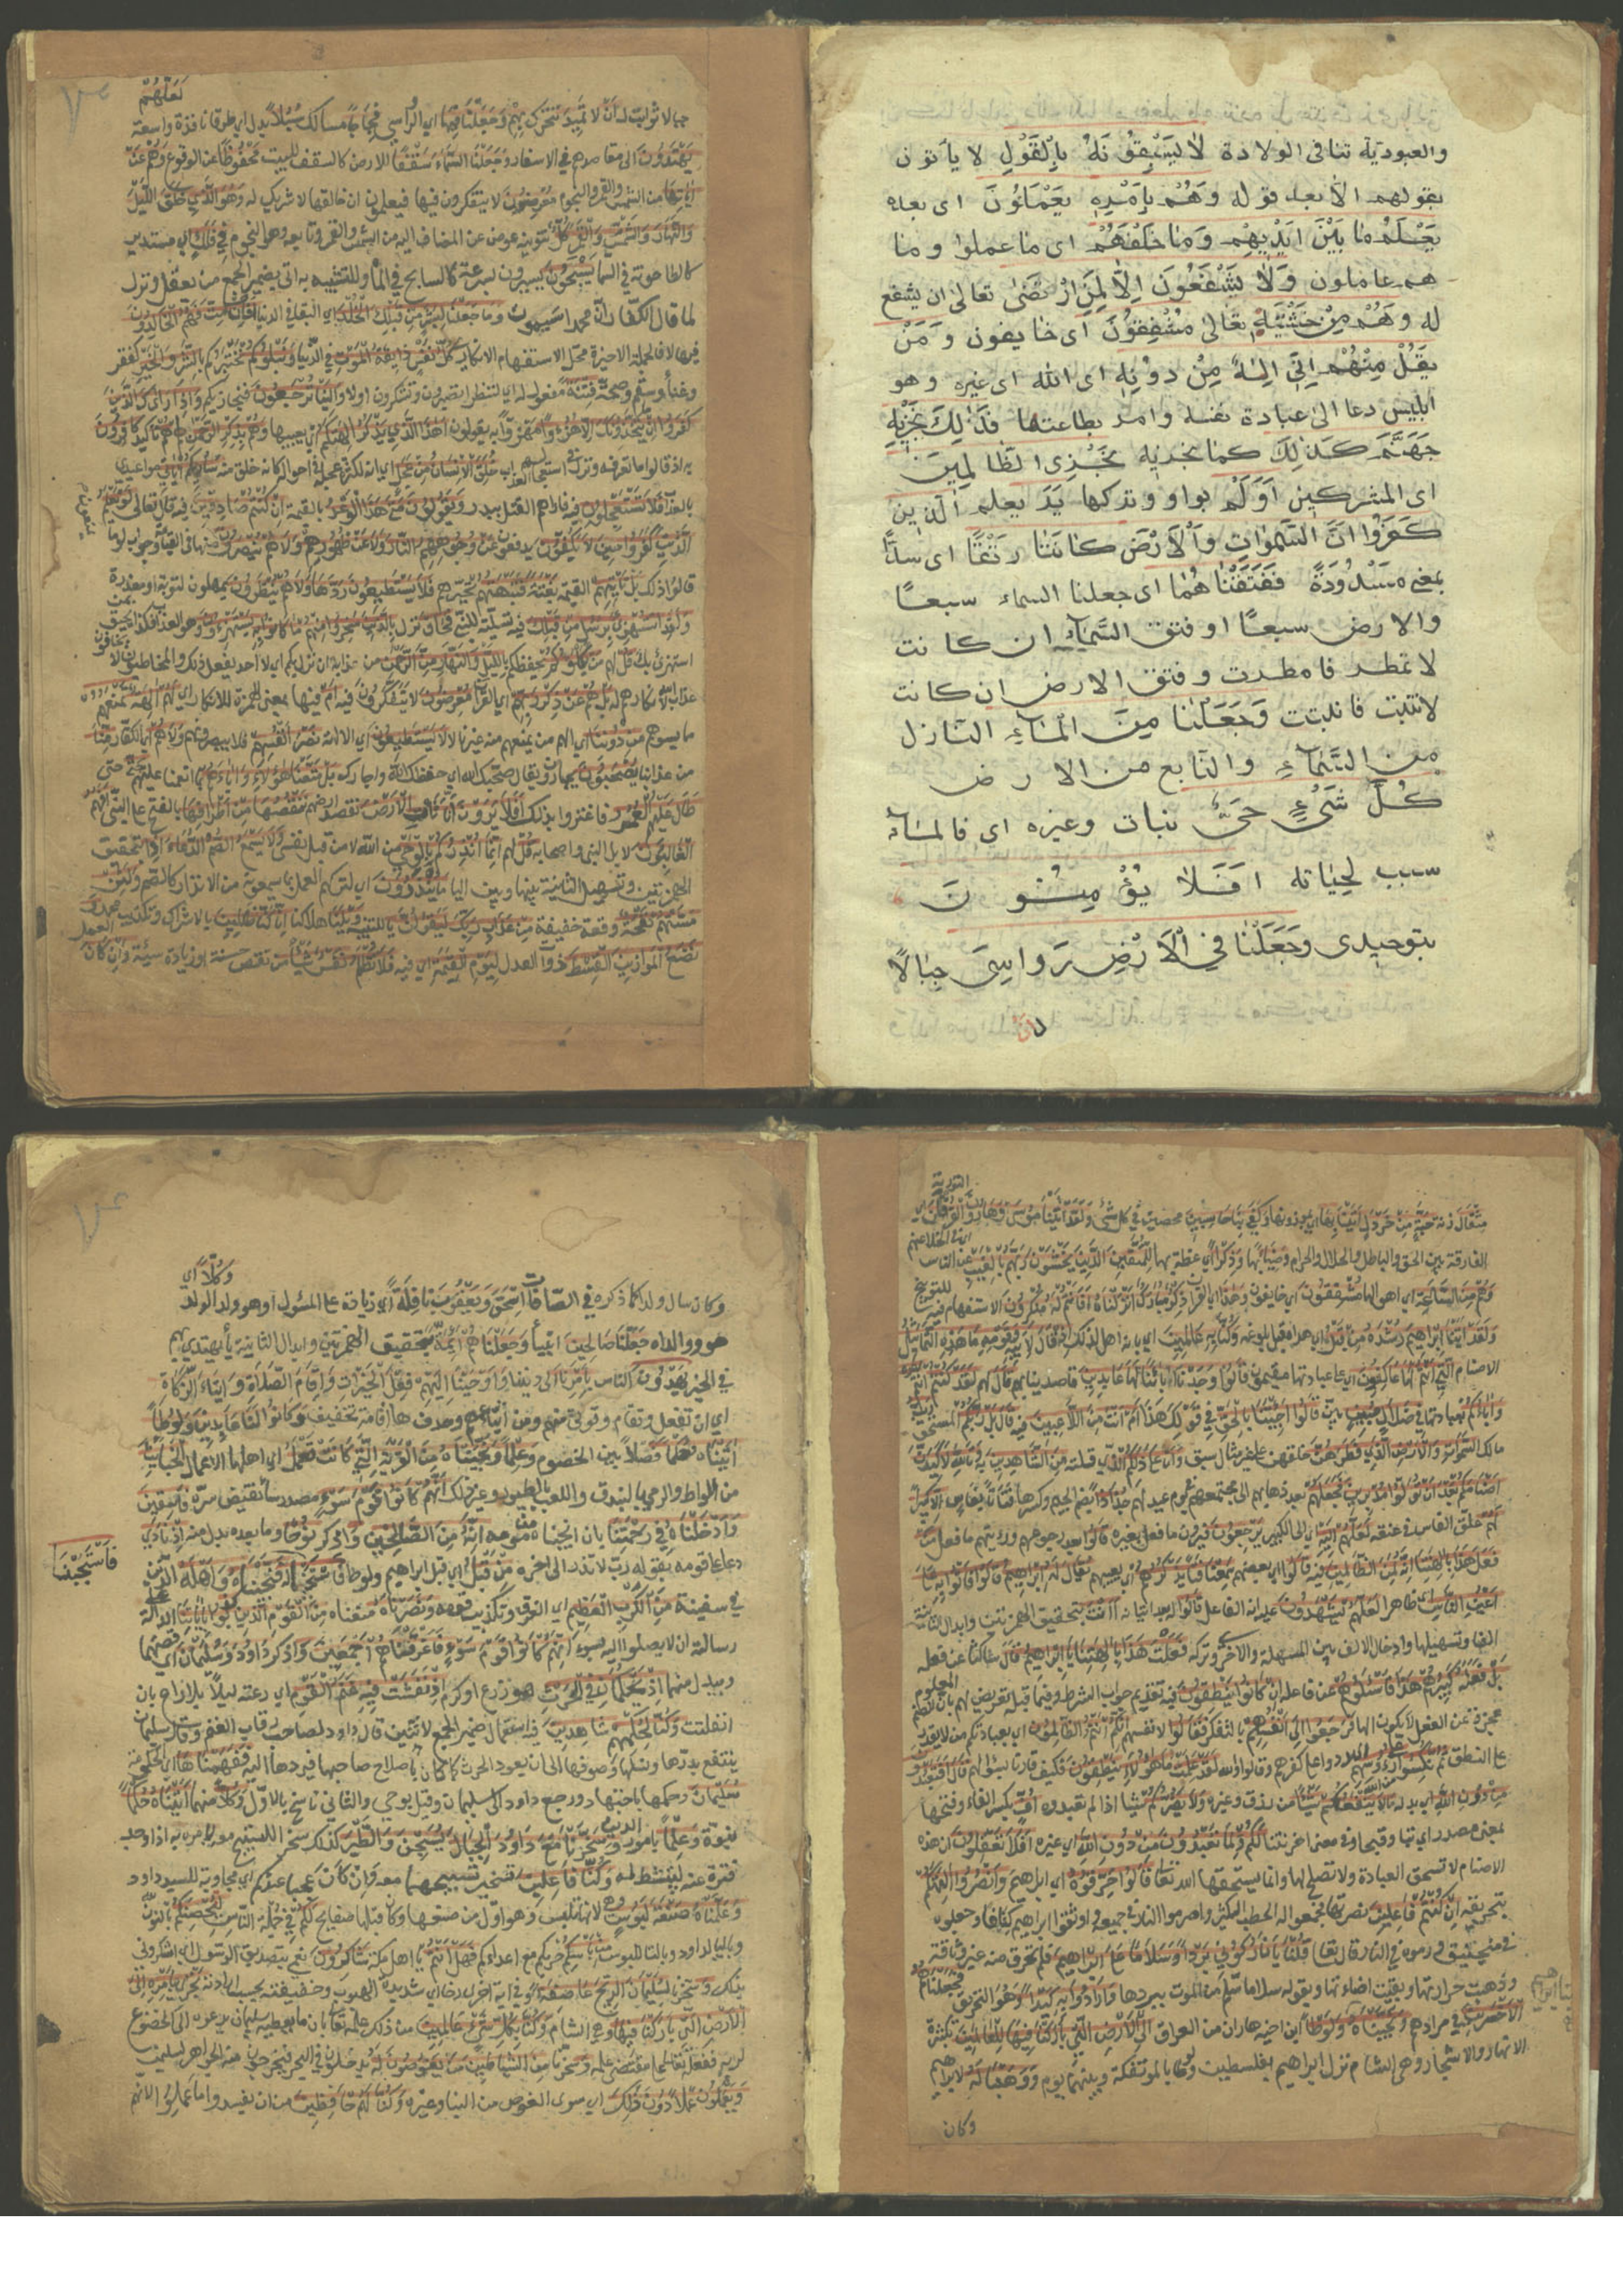 والعبودية تنافى الولادة لَا يَسْبِقُوْنَهُ بِالْقَوْلِ لا يأتون
بقولهم الا بعد قوله وَهُمْ بِاَمْرِهٖ يَعْمَلُوْنَ اى بعده
يَعْلَمُ مَا بَيْنَ اَيْدِيْهِمْ وَمَا خَلْفَهُمْ اى ما عملوا وما
هم عاملون وَلَا يَشْفَعُوْنَ اِلَّا لِمَنِ ارْتَضٰى تعالى ان يشفع
له وَهُمْ مِنْ خَشْيَتِهٖ تعالى مُشْفِقُوْنَ اى خايفون وَمَنْ
يَقُلْ مِنْهُمْ اِنِّى اِلٰهٌ مِنْ دُوْنِهٖ اى الله اى غيره وهو
ابليس دعا الى عبادة نفسه وامر بطاعتها فَذٰلِكَ نَجْزِيْهِ
جَهَنَّمَ كَذٰلِكَ كما نجزيه نَجْزِى الظّٰالِمِيْنَ
اى المشركين اَوَلَمْ بواو وتركها يَرَ يعلم الَّذِيْنَ
كَفَرُوْا اَنَّ السَّمٰوَاتِ وَالْاَرْضَ كَانَتَا رَتْقًا اى سدًّا
بمعنى مسدُودَةً فَفَتَقْنَاهُمَا اى جعلنا السماء سبعًا
والارض سبعًا او فتق السَّمَآءِ ان كانت
لا تمطر فامطرت وفتق الارض ان كانت
لا تنبت فانبتت وَجَعَلْنَا مِنَ الْمَآءِ النازل
من السَّمَآءِ والنابع من الارض
كُلَّ شَىْءٍ حَىٍّ نبات وغيره اى فالمآء
سبب لحياته اَفَلَا يُؤْمِنُوْنَ
بتوحيدى وَجَعَلْنَا فِى الْاَرْضِ رَوَاسِىَ جِبَالًا
لَعَلَّهُمْ
جبالا ثوابت لـ اَنْ لا تَمِيْدَ تتحرك بِهِمْ وَجَعَلْنَا فِيْهَا اى الرواسى فِجَاجًا مسالك سُبُلًا بدل اى طرقا نافذة واسعة
يَهْتَدُوْنَ الى مقاصدهم فى الاسفار وَجَعَلْنَا السَّمَاءَ سَقْفًا للارض كالسقف للبيت مَحْفُوْظًا عن الوقوع وَهُمْ عَنْ
اٰيَاتِهَا من الشمس والقمر والنجوم مُعْرِضُوْنَ لا يتفكرون فيها فيعلمون ان خالقها لا شريك له وَهُوَ الَّذِىْ خَلَقَ اللَّيْلَ
وَالنَّهَارَ وَالشَّمْسَ وَالْقَمَرَ كُلٌّ تنوينه عوض عن المضاف اليه من الشمس والقمر وتابعه وهو النجوم فِىْ فَلَكٍ اى مستدير
كالطاحونة فى السما يَسْبَحُوْنَ يسيرون بسرعة كالسابح فى الماء وللتشبيه به اتى بضمير الجمع من يعقل ونزل
لما قال الكفار ان محمدا سيموت وَمَا جَعَلْنَا لِبَشَرٍ مِنْ قَبْلِكَ الْخُلْدَ اى البقا فى الدنيا اَفَإِنْ مِتَّ فَهُمُ الْخَالِدُوْنَ
فيها لا فالجملة الاخيرة محل الاستفهام الانكارى كُلُّ نَفْسٍ ذَائِقَةُ الْمَوْتِ فى الدنيا وَنَبْلُوْكُمْ نختبركم بِالشَّرِّ وَالْخَيْرِ كفقر
وغنا وسقم وصحة فِتْنَةً مفعول له اى لننظر اتصبرون وتشكرون اولا وَاِلَيْنَا تُرْجَعُوْنَ فنجازيكم وَاِذَا رَاٰكَ الَّذِيْنَ
كَفَرُوْا اِنْ يَتَّخِذُوْنَكَ اِلَّا هُزُوًا اى مهزوًا به يقولون اَهٰذَا الَّذِىْ يَذْكُرُ اٰلِهَتَكُمْ اى يعيبها وَهُمْ بِذِكْرِ الرَّحْمٰنِ لهم هُمْ تأكيد كَافِرُوْنَ
به اذ قالوا ما نعرفه ونزل فى استعجالهم العذاب خُلِقَ الْاِنْسَانُ مِنْ عَجَلٍ اى انه لكثرة عجله فى احواله كانه خلق منه سَاُرِيْكُمْ اٰيَاتِىْ مواعيدى
بالعذاب فَلَا تَسْتَعْجِلُوْنِ فيه فاراهم القتل ببدر وَيَقُوْلُوْنَ مَتٰى هٰذَا الْوَعْدُ بالقيمة اِنْ كُنْتُمْ صَادِقِيْنَ فيه قال تعالى لَوْ يَعْلَمُ
الَّذِيْنَ كَفَرُوْا حِيْنَ لَا يَكُفُّوْنَ يدفعون عَنْ وُجُوْهِهِمُ النَّارَ وَلَا عَنْ ظُهُوْرِهِمْ وَلَا هُمْ يُنْصَرُوْنَ يمنعون منها فى القيمة وجواب لو ما
قالوا ذلك بَلْ تَأْتِيْهِمْ القيمة بَغْتَةً فَتَبْهَتُهُمْ تحيرهم فَلَا يَسْتَطِيْعُوْنَ رَدَّهَا وَلَا هُمْ يُنْظَرُوْنَ يمهلون لتوبة او معذرة
وَلَقَدِ اسْتُهْزِئَ بِرُسُلٍ مِنْ قَبْلِكَ فيه تسلية للنبى فَحَاقَ نزل بِالَّذِيْنَ سَخِرُوْا مِنْهُمْ مَا كَانُوْا بِهٖ يَسْتَهْزِءُوْنَ وهو العذاب فكذا يحيق بمن
استهزئ بك قُلْ لهم مَنْ يَكْلَؤُكُمْ يحفظكم بِاللَّيْلِ وَالنَّهَارِ مِنَ الرَّحْمٰنِ من عذابه ان نزل بكم اى لا احد يفعل ذلك والمخاطبون لا يخافون
عذاب الله لانكارهم له بَلْ هُمْ عَنْ ذِكْرِ رَبِّهِمْ اى القران مُعْرِضُوْنَ لا يتفكرون فيه اَمْ فيها بمعنى الهمزة للانكار اى أ لَهُمْ اٰلِهَةٌ تَمْنَعُهُمْ
مما يسوءهم مِنْ دُوْنِنَا اى الهم من يمنعهم منه غيرنا لا لَا يَسْتَطِيْعُوْنَ اى الالهة نَصْرَ اَنْفُسِهِمْ فلا ينصرونهم وَلَا هُمْ اى الكفار مِنَّا
من عذابنا يُصْحَبُوْنَ يجارون يقال صحبك الله اى حفظك الله واجارك بَلْ مَتَّعْنَا هٰؤُلَاءِ وَاٰبَاءَهُمْ بما انعمنا عليهم حَتّٰى
طَالَ عَلَيْهِمُ الْعُمُرُ فاغتروا بذلك اَفَلَا يَرَوْنَ اَنَّا نَأْتِى الْاَرْضَ نقصد ارضهم نَنْقُصُهَا مِنْ اَطْرَافِهَا بالفتح على النبى اَفَهُمُ
الْغَالِبُوْنَ لا بل النبى واصحابه قُلْ لهم اِنَّمَا اُنْذِرُكُمْ بِالْوَحْىِ من الله لا من قبل نفسى وَلَا يَسْمَعُ الصُّمُّ الدُّعَاءَ اِذَا بتحقيق
الهمزتين وتسهيل الثانية بينها وبين اليا مَا يُنْذَرُوْنَ اى لتركهم العمل بما سمعوه من الانذار كالصم وَلَئِنْ
مَسَّتْهُمْ نَفْحَةٌ وقعة خفيفة مِنْ عَذَابِ رَبِّكَ لَيَقُوْلُنَّ يا للتنبيه وَيْلَنَا هلاكنا اِنَّا كُنَّا ظَالِمِيْنَ بالاشراك وتكذيب محمد وَ
نَضَعُ الْمَوَازِيْنَ الْقِسْطَ ذوات العدل لِيَوْمِ الْقِيٰمَةِ اى فيه فَلَا تُظْلَمُ نَفْسٌ شَيْئًا من نقص حسنة او زيادة سيئة وَاِنْ كَانَ العمل
مِثْقَالَ زنة حَبَّةٍ مِنْ خَرْدَلٍ اَتَيْنَا بِهَا اى بموزونها وَكَفٰى بِنَا حَاسِبِيْنَ محصين فى كل شئ وَلَقَدْ اٰتَيْنَا مُوْسٰى وَهَارُوْنَ الْفُرْقَانَ اى التورية
الفارقة بين الحق والباطل والحلال والحرام وَضِيَاءً بها وَذِكْرًا اى عظة بها لِلْمُتَّقِيْنَ الَّذِيْنَ يَخْشَوْنَ رَبَّهُمْ بِالْغَيْبِ عن الناس اى فى الخلا عنهم
وَهُمْ مِنَ السَّاعَةِ اى اهوالها مُشْفِقُوْنَ اى خايفون وَهٰذَا اى القران ذِكْرٌ مُبَارَكٌ اَنْزَلْنَاهُ اَفَاَنْتُمْ لَهُ مُنْكِرُوْنَ الاستفهام فيه للتوبيخ
وَلَقَدْ اٰتَيْنَا اِبْرَاهِيْمَ رُشْدَهُ مِنْ قَبْلُ اى هداه قبل بلوغه وَكُنَّا بِهٖ عَالِمِيْنَ اى بانه اهل لذلك اِذْ قَالَ لِاَبِيْهِ وَقَوْمِهٖ مَا هٰذِهِ التَّمَاثِيْلُ
الاصنام الَّتِىْ اَنْتُمْ لَهَا عَاكِفُوْنَ اى على عبادتها مقيمون قَالُوْا وَجَدْنَا اٰبَاءَنَا لَهَا عَابِدِيْنَ فاقتدينا بهم قَالَ لهم لَقَدْ كُنْتُمْ اَنْتُمْ
وَاٰبَاؤُكُمْ بعبادتها فِىْ ضَلَالٍ مُبِيْنٍ بين قَالُوْا اَجِئْتَنَا بِالْحَقِّ فى قولك هذا اَمْ اَنْتَ مِنَ اللَّاعِبِيْنَ فيه قَالَ بَلْ رَبُّكُمْ المستحق
مالك السَّمٰوَاتِ وَالْاَرْضِ الَّذِىْ فَطَرَهُنَّ خلقهن على غير مثال سبق وَاَنَا عَلٰى ذٰلِكُمْ الذى قلته مِنَ الشَّاهِدِيْنَ به وَتَاللهِ لَاَكِيْدَنَّ
اَصْنَامَكُمْ بَعْدَ اَنْ تُوَلُّوْا مُدْبِرِيْنَ فَجَعَلَهُمْ بعد ذهابهم الى مجتمعهم فى يوم عيد لهم جُذَاذًا بضم الجيم وكسرها فتاتا بفاس اِلَّا كَبِيْرًا
لَهُمْ علق الفاس فى عنقه لَعَلَّهُمْ اِلَيْهِ اى الى الكبير يَرْجِعُوْنَ فيرون ما فعل بغيره قَالُوْا بعد رجوعهم ورؤيتهم ما فعل مَنْ
فَعَلَ هٰذَا بِاٰلِهَتِنَا اِنَّهُ لَمِنَ الظَّالِمِيْنَ فيه قَالُوْا اى بعضهم سَمِعْنَا فَتًى يَذْكُرُهُمْ اى يعيبهم يُقَالُ لَهُ اِبْرَاهِيْمُ قَالُوْا فَأْتُوْا بِهٖ عَلٰى
اَعْيُنِ النَّاسِ اى ظاهرا لَعَلَّهُمْ يَشْهَدُوْنَ عليه انه الفاعل قَالُوْا له بعد اتيانه أَاَنْتَ بتحقيق الهمزتين وابدال الثانية
الفا وتسهيلها وادخال الالف بين المسهلة والاخرى وتركه فَعَلْتَ هٰذَا بِاٰلِهَتِنَا يَا اِبْرَاهِيْمُ قَالَ ساكتا عن فعله
بَلْ فَعَلَهُ كَبِيْرُهُمْ هٰذَا فَاسْئَلُوْهُمْ عن فاعله اِنْ كَانُوْا يَنْطِقُوْنَ فيه تقديم جواب الشرط وفيما قبله تعريض لهم بان الصنم المعلوم
عجزه عن الفعل لا يكون الها فَرَجَعُوْا اِلٰى اَنْفُسِهِمْ بالتفكر فَقَالُوْا لانفسهم اِنَّكُمْ اَنْتُمُ الظَّالِمُوْنَ اى بعبادتكم من لا يقدر
على النطق ثُمَّ نُكِسُوْا عَلٰى رُءُوْسِهِمْ اى ردوا على كفرهم وقالوا والله لَقَدْ عَلِمْتَ مَا هٰؤُلَاءِ يَنْطِقُوْنَ فكيف تأمرنا بسؤالهم قَالَ اَفَتَعْبُدُوْنَ
مِنْ دُوْنِ اللهِ اى بدله مَا لَا يَنْفَعُكُمْ شَيْئًا من رزق وغيره وَلَا يَضُرُّكُمْ شيئا اذا لم تعبدوه اُفٍّ بكسر الفاء وفتحها
بمعنى مصدر اى تبا وقبحا لَكُمْ وَلِمَا تَعْبُدُوْنَ مِنْ دُوْنِ اللهِ اى غيره اَفَلَا تَعْقِلُوْنَ ان هذه
الاصنام لا تستحق العبادة ولا تصلح لها وانما يستحقها الله تعالى قَالُوْا حَرِّقُوْهُ اى ابراهيم وَانْصُرُوْا اٰلِهَتَكُمْ
بتحريقه اِنْ كُنْتُمْ فَاعِلِيْنَ نصرتها فجمعوا له الحطب الكثير واضرموا النار فى جميعه واوثقوا ابراهيم كتافا وجعلوه
فى منجنيق ورموه فى النار قال تعالى قُلْنَا يَا نَارُ كُوْنِىْ بَرْدًا وَسَلَامًا عَلٰى اِبْرَاهِيْمَ فلم تحرق منه غير وثاقه
وذهبت حرارتها وبقيت اضاءتها وبقوله سلاما سلم من الموت ببردها وَاَرَادُوْا بِهٖ كَيْدًا وهو التحريق فَجَعَلْنَاهُمُ
الْاَخْسَرِيْنَ فى مرادهم وَنَجَّيْنَاهُ وَلُوْطًا ابن اخيه هاران من العراق اِلَى الْاَرْضِ الَّتِىْ بَارَكْنَا فِيْهَا لِلْعَالَمِيْنَ بكثرة
الانهار والاشجار وهى الشام نزل ابراهيم بفلسطين ولوط بالموتفكة وبينهما يوم وَوَهَبْنَا لَهُ لابراهيم
وكان
وَكُلًّا اى
وكان سال ولدا كما ذكره فى الصافات اِسْحٰقَ وَيَعْقُوْبَ نَافِلَةً اى زيادة على المسئول او هو ولد الولد
هو ووالداه جَعَلْنَا صَالِحِيْنَ انبيأ وَجَعَلْنَاهُمْ اَئِمَّةً بتحقيق الهمزتين وابدال الثانية يأ يهتدى بهم
فى الخير يَهْدُوْنَ الناس بِاَمْرِنَا الى ديننا وَاَوْحَيْنَا اِلَيْهِمْ فِعْلَ الْخَيْرَاتِ وَاِقَامَ الصَّلَاةِ وَاِيْتَاءَ الزَّكَاةِ
اى ان تفعل وتقام وتوتى منهم ومن اتباعهم وحذف ها اقامة تخفيف وَكَانُوْا لَنَا عَابِدِيْنَ وَلُوْطًا
اٰتَيْنَاهُ حُكْمًا فصلا بين الخصوم وَعِلْمًا وَنَجَّيْنَاهُ مِنَ الْقَرْيَةِ الَّتِىْ كَانَتْ تَعْمَلُ اى اهلها الاعمال الْخَبَائِثَ
من اللواط والرمى بالبندق واللعب بالطيور وغير ذلك اِنَّهُمْ كَانُوْا قَوْمَ سَوْءٍ مصدر سأ نقيض سره فَاسِقِيْنَ
وَاَدْخَلْنَاهُ فِىْ رَحْمَتِنَا بان انجيناه من قومه اِنَّهُ مِنَ الصَّالِحِيْنَ وَ اذكر نُوْحًا وما بعده بدل منه اِذْ نَادٰى
فَاسْتَجَبْنَا
دعا على قومه بقوله رب لا تذر الى اخره مِنْ قَبْلُ اى قبل ابراهيم ولوط فَاسْتَجَبْنَا لَهُ فَنَجَّيْنَاهُ وَاَهْلَهُ الذين
فى سفينة مِنَ الْكَرْبِ الْعَظِيْمِ اى الغرق وتكذيب قومه وَنَصَرْنَاهُ منعناه مِنَ الْقَوْمِ الَّذِيْنَ كَذَّبُوْا بِاٰيَاتِنَا الدالة على
رسالته ان لا يصلوا اليه بسوء اِنَّهُمْ كَانُوْا قَوْمَ سَوْءٍ فَاَغْرَقْنَاهُمْ اَجْمَعِيْنَ وَ اذكر دَاوُدَ وَسُلَيْمَانَ اى قصتهما
ويبدل منهما اِذْ يَحْكُمَانِ فِى الْحَرْثِ هو زرع او كرم اِذْ نَفَشَتْ فِيْهِ غَنَمُ الْقَوْمِ اى رعته ليلًا بلا راع بان
انفلتت وَكُنَّا لِحُكْمِهِمْ شَاهِدِيْنَ فيه استعمال ضمير الجمع لاثنين قال داود لصاحب الحرث رقاب الغنم وقال سليمان
ينتفع بدرها ونسلها وصوفها الى ان يعود الحرث كما كان باصلاح صاحبها فيردها اليه فَفَهَّمْنَاهَا اى الحكومة
سُلَيْمَانَ وحكمهما باجتهاد ورجع داود الى سليمان وقيل بوحى والثانى ناسخ بالاول وَكُلًّا منهما اٰتَيْنَاهُ حُكْمًا
نبوة وَعِلْمًا بامور الدين وَسَخَّرْنَا مَعَ دَاوُدَ الْجِبَالَ يُسَبِّحْنَ وَالطَّيْرَ كذلك سخر للتسبيح معه لامره به اذا وجد
فترة عنه لينشط له وَكُنَّا فَاعِلِيْنَ تسخير تسبيحهما معه وان كان عجبا عندكم اى مجاوبته للسيد داود
وَعَلَّمْنَاهُ صَنْعَةَ لَبُوْسٍ وهى لانها تلبس وهو اول من صنعها وكان قبلها صفايح لَكُمْ فى جملة الناس لِتُحْصِنَكُمْ بالنون
وباليا لداود وبالتا للبوس مِنْ بَاْسِكُمْ حربكم مع اعداءكم فَهَلْ اَنْتُمْ يا اهل مكة شَاكِرُوْنَ نعمى بتصديق الرسول اى اشكرونى
بذلك وَ سخرنا لِسُلَيْمَانَ الرِّيْحَ عَاصِفَةً وفى اية اخرى رخا اى شديدة الهبوب وخفيفته بحسب ارادته تَجْرِىْ بِاَمْرِهٖ اِلٰى
الْاَرْضِ الَّتِىْ بَارَكْنَا فِيْهَا وهى الشام وَكُنَّا بِكُلِّ شَىْءٍ عَالِمِيْنَ من ذلك علمه تعالى بان ما يعطيه سليمان يدعوه الى الخضوع
لربه ففعله تعالى على مقتضى علمه وَ سخرنا مِنَ الشَّيَاطِيْنِ مَنْ يَغُوْصُوْنَ لَهُ يدخلون فى البحر فيخرجون منه الجواهر لسليمان
وَيَعْمَلُوْنَ عَمَلًا دُوْنَ ذٰلِكَ اى سوى الغوص من البنا وغيره وَكُنَّا لَهُمْ حَافِظِيْنَ من ان يفسدوا ما عملوا لانهم